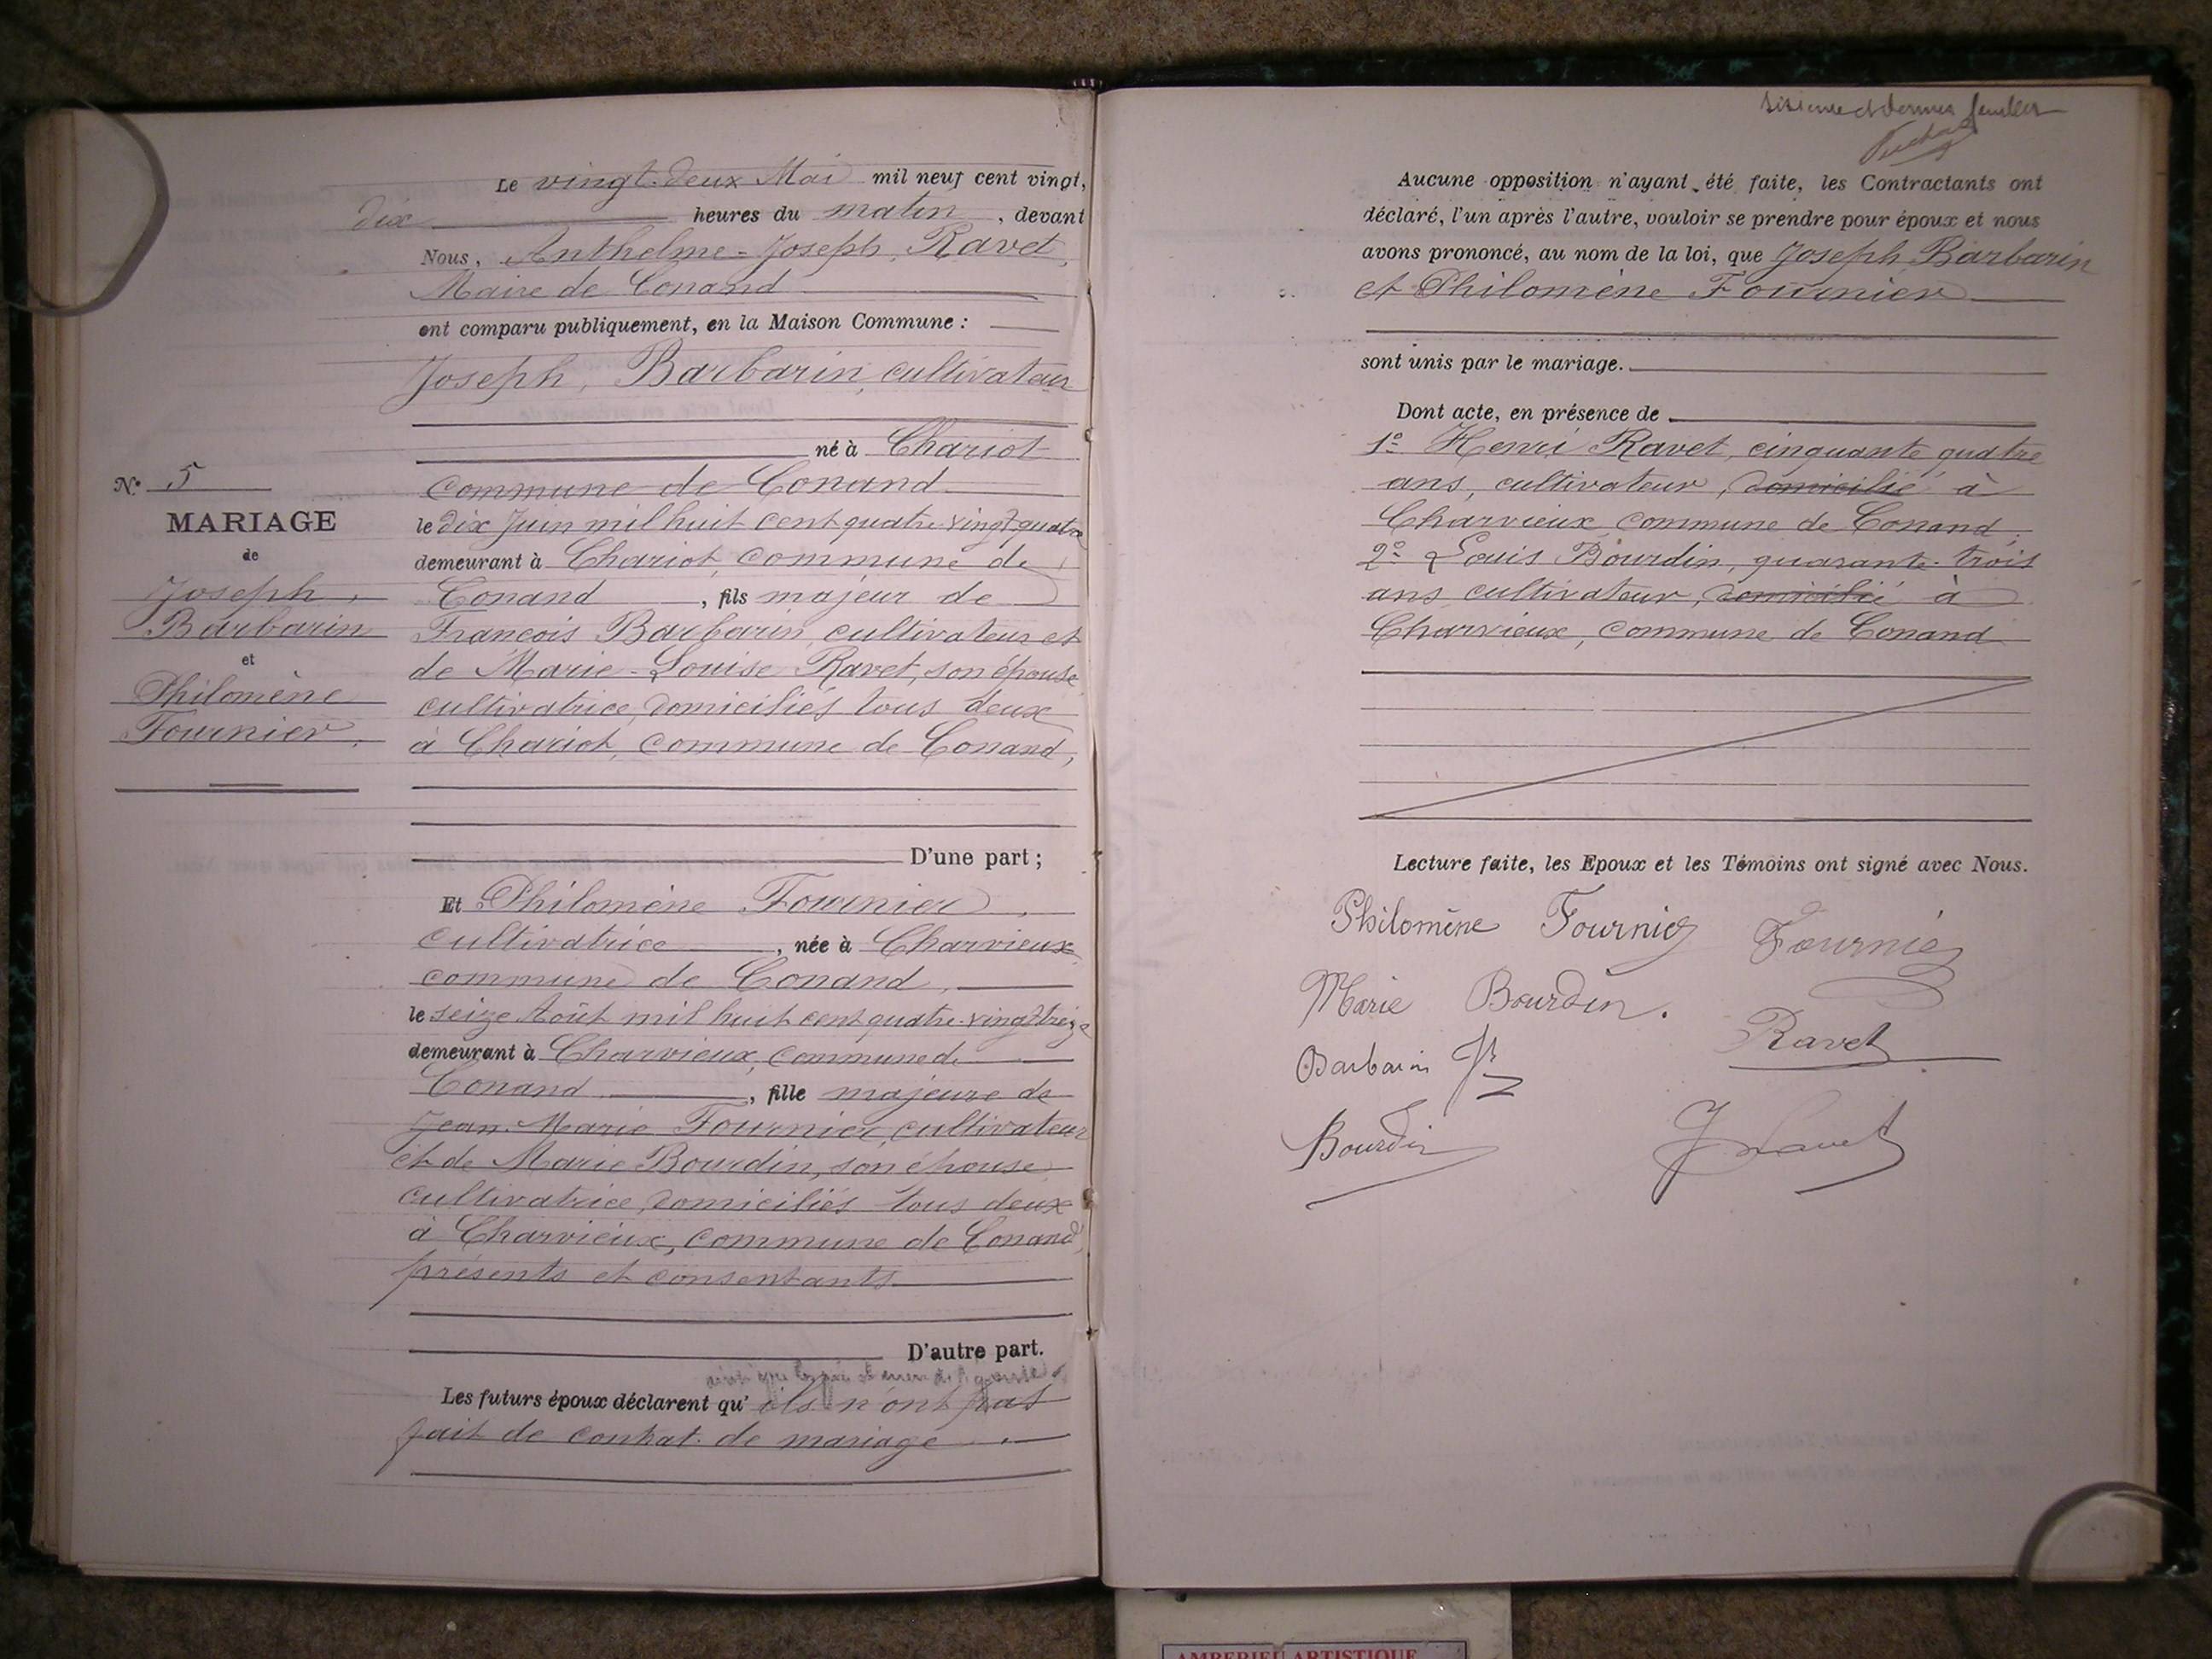 Le vingt-deux Mai mil neuf cent vingt,
dix heures du matin, devant
Nous, Anthelme-Joseph, Ravet,
Maire de Conand
ont comparu publiquement, en la Maison Commune :
Joseph, Barbarin, cultivateur
né à Chariot
commune de Conand
le dix Juin mil huit cent quatre-vingt quatre
demeurant à Chariot, commune de
Conand, fils majeur de
François Barbarin, cultivateur et
de Marie-Louise Ravet, son épouse
cultivatrice, domiciliés tous deux
à Chariot, commune de Conand,
D'une part ;
N° 5
MARIAGE
de
Joseph,
Barbarin
et
Philomène
Fournier.
Et Philomène Fournier,
cultivatrice, née à Charvieux
commune de Conand,
le seize Août mil huit cent quatre-vingt treize
demeurant à Charvieux, commune de
Conand, fille majeure de
Jean-Marie Fournier, cultivateur
et de Marie Bourdin, son épouse
cultivatrice, domiciliés tous deux
à Charvieux, commune de Conand,
présents et consentants.
D'autre part.
Les futurs époux déclarent qu'ils n'ont pas
fait de contrat de mariage.
feuillet
Aucune opposition n'ayant été faite, les Contractants ont
déclaré, l'un après l'autre, vouloir se prendre pour époux et nous
avons prononcé, au nom de la loi, que Joseph Barbarin
et Philomène Fournier
sont unis par le mariage.
Dont acte, en présence de
1° Henri Ravet, cinquante quatre
ans, cultivateur, domicilié à
Charvieux, commune de Conand,
2° Louis Bourdin, quarante-trois
ans cultivateur, domicilié à
Charvieux, commune de Conand
Lecture faite, les Epoux et les Témoins ont signé avec Nous.
Philomène Fournier Fournier
Marie Bourdin.
Ravet
Barbarin Jh
Bourdin J Ravet
AMBERIEU ARTISTIQUE